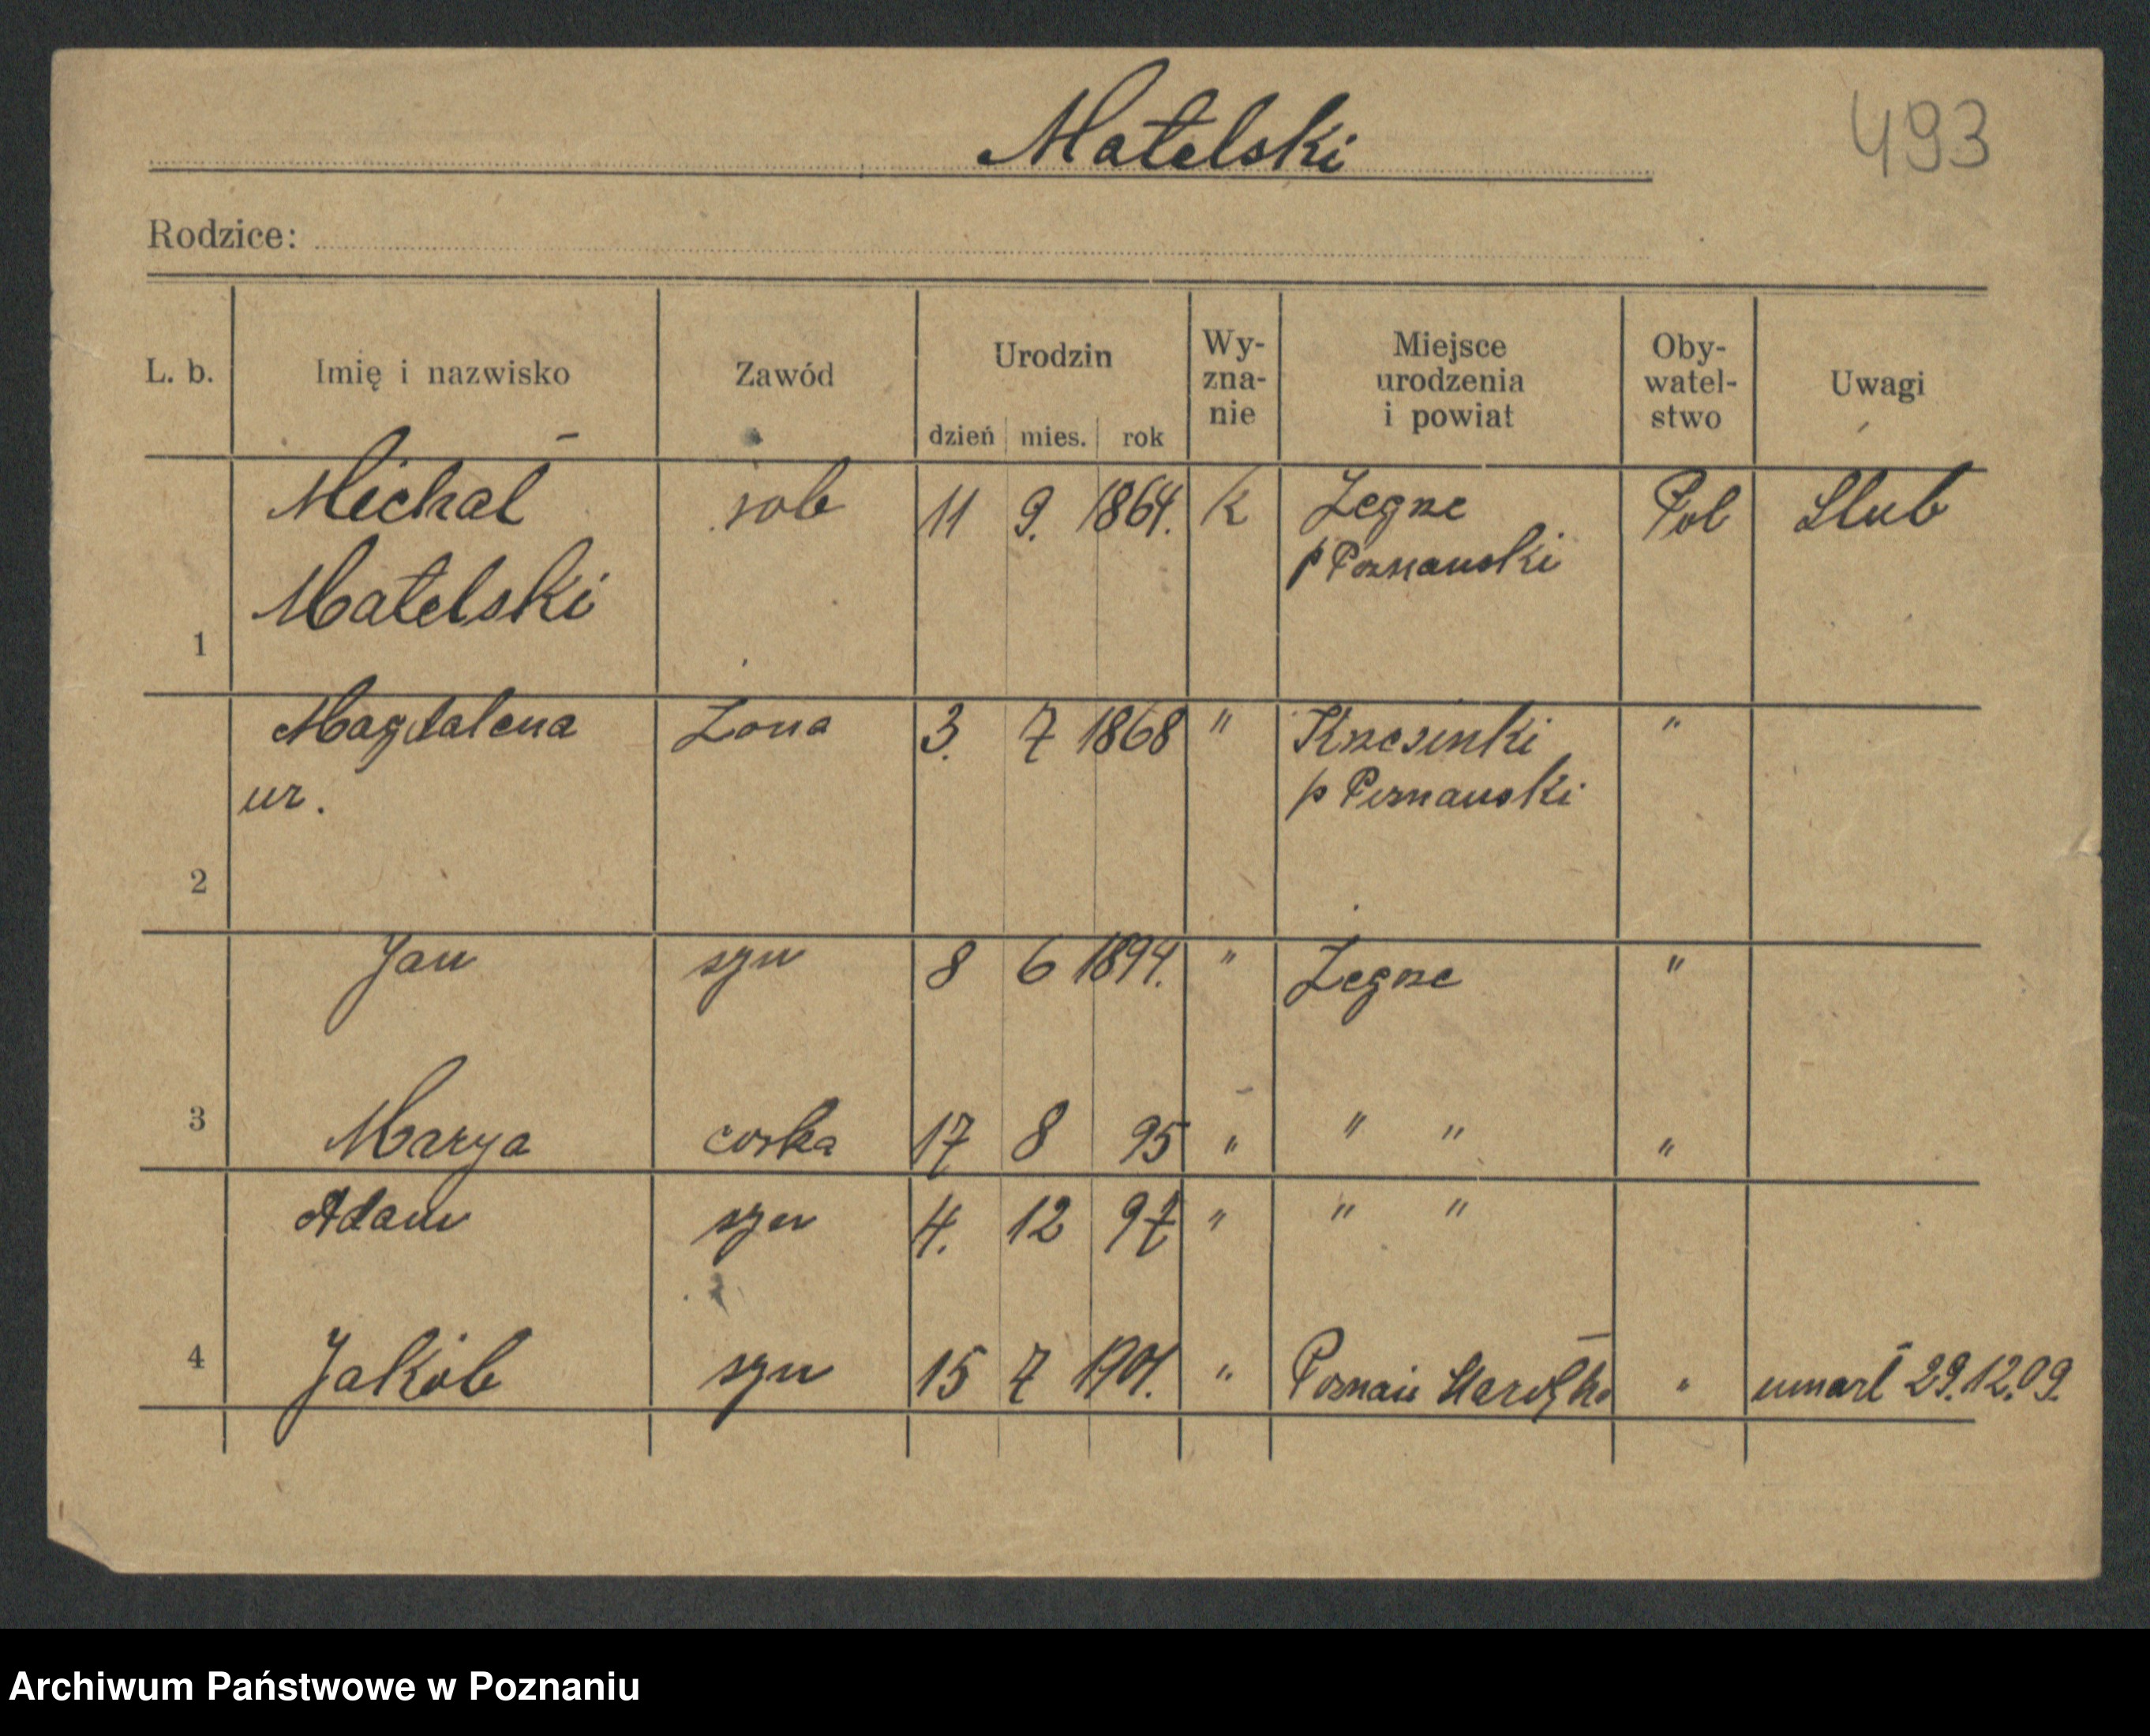 Matelski
493
Rodzice:
L. b. Imię i nazwisko Zawód Urodzin dzień mies. rok Wy-zna-nie Miejsce urodzenia i powiat Oby-watel-stwo Uwagi
Michał rob 11 9. 1864. k Zegrze Pol Slub
Matelski p Poznanski
1
Magdalena Zona 3. 7 1868 " Krzesinki "
ur. p Poznanski
2
Jan syn 8 6 1894. " Zegrze "
3 Marya corka 17 8 95 " " " "
Adam syn 4. 12 97 " " "
4 Jakób syn 15 7 1901. " Poznań "  umarł 29.12.09.
Archiwum Państwowe w Poznaniu